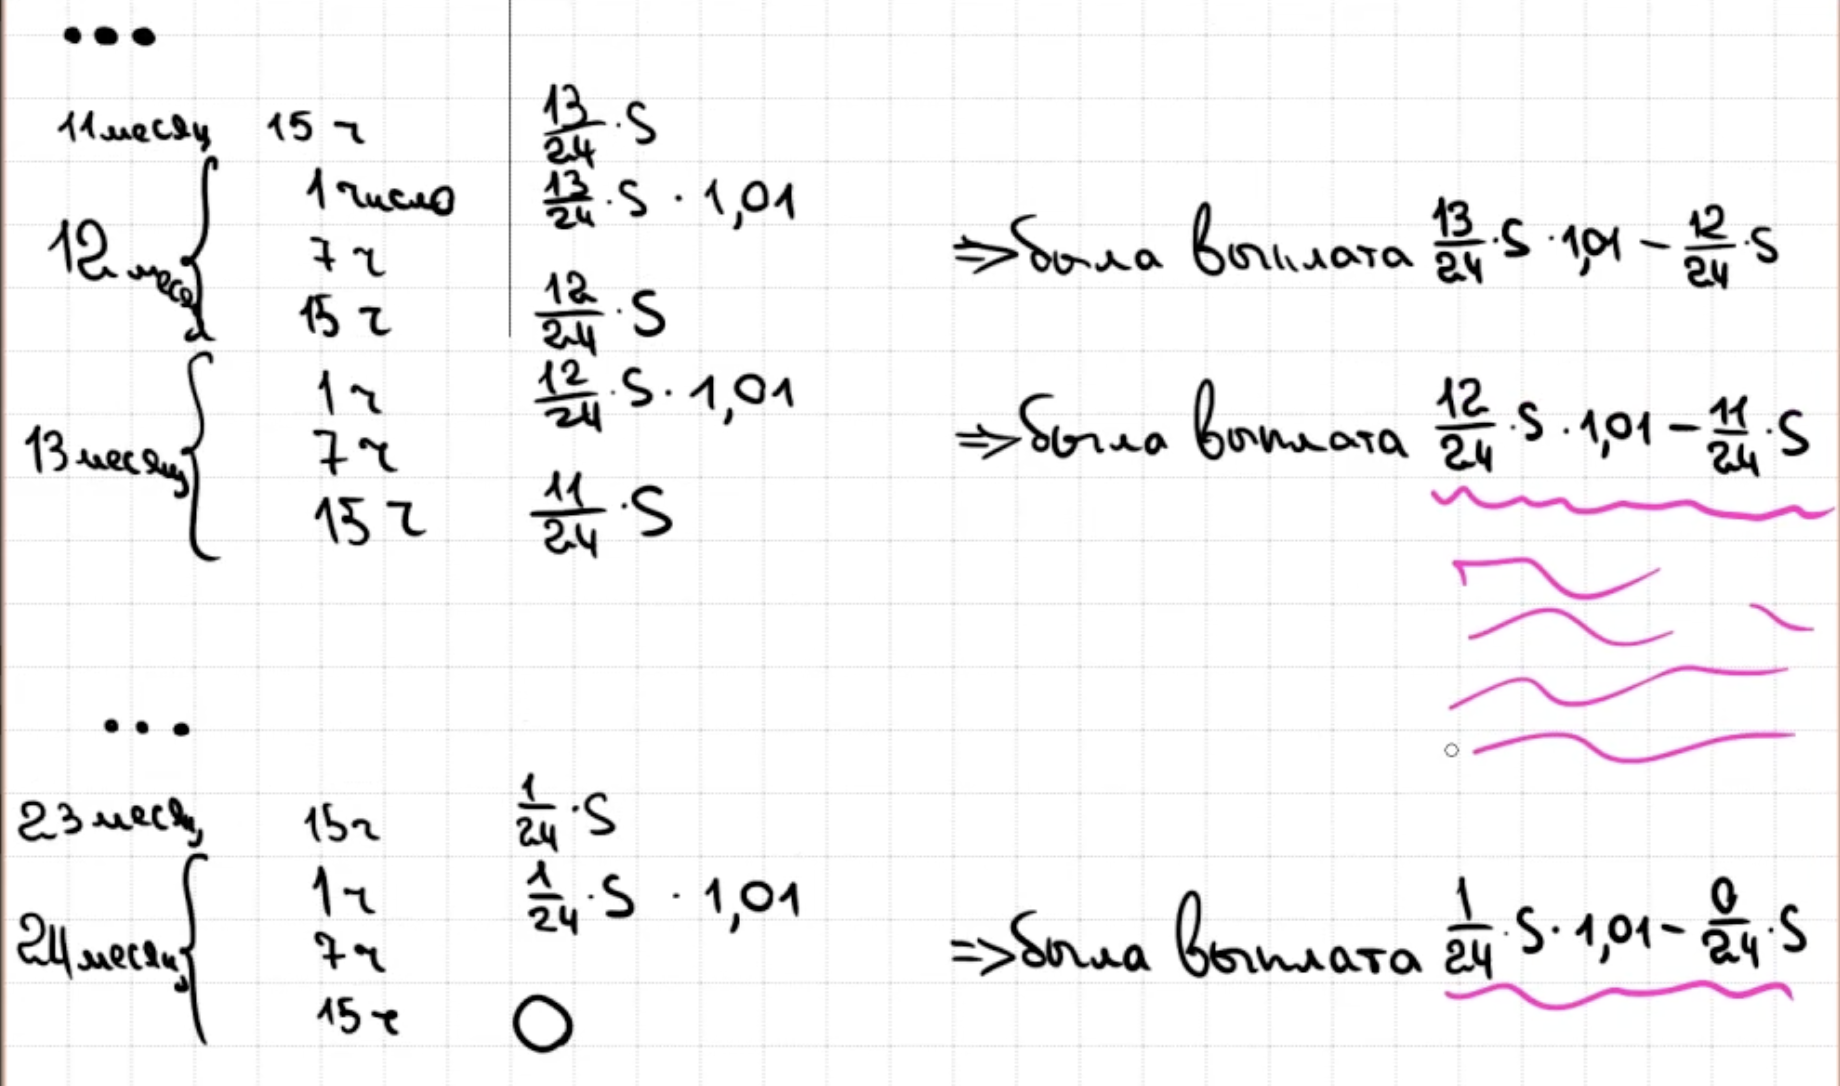 ...
11 месяц 15 ч 13/24 · S
12 месяц 1 число 13/24 · S · 1,01
7 ч ⇒ была выплата 13/24 · S · 1,01 − 12/24 · S
15 ч 12/24 · S
13 месяц 1 ч 12/24 · S · 1,01
7 ч ⇒ была выплата 12/24 · S · 1,01 − 11/24 · S
15 ч 11/24 · S
...
23 месяц 15 ч 1/24 · S
24 месяц 1 ч 1/24 · S · 1,01
7 ч ⇒ была выплата 1/24 · S · 1,01 − 0/24 · S
15 ч 0